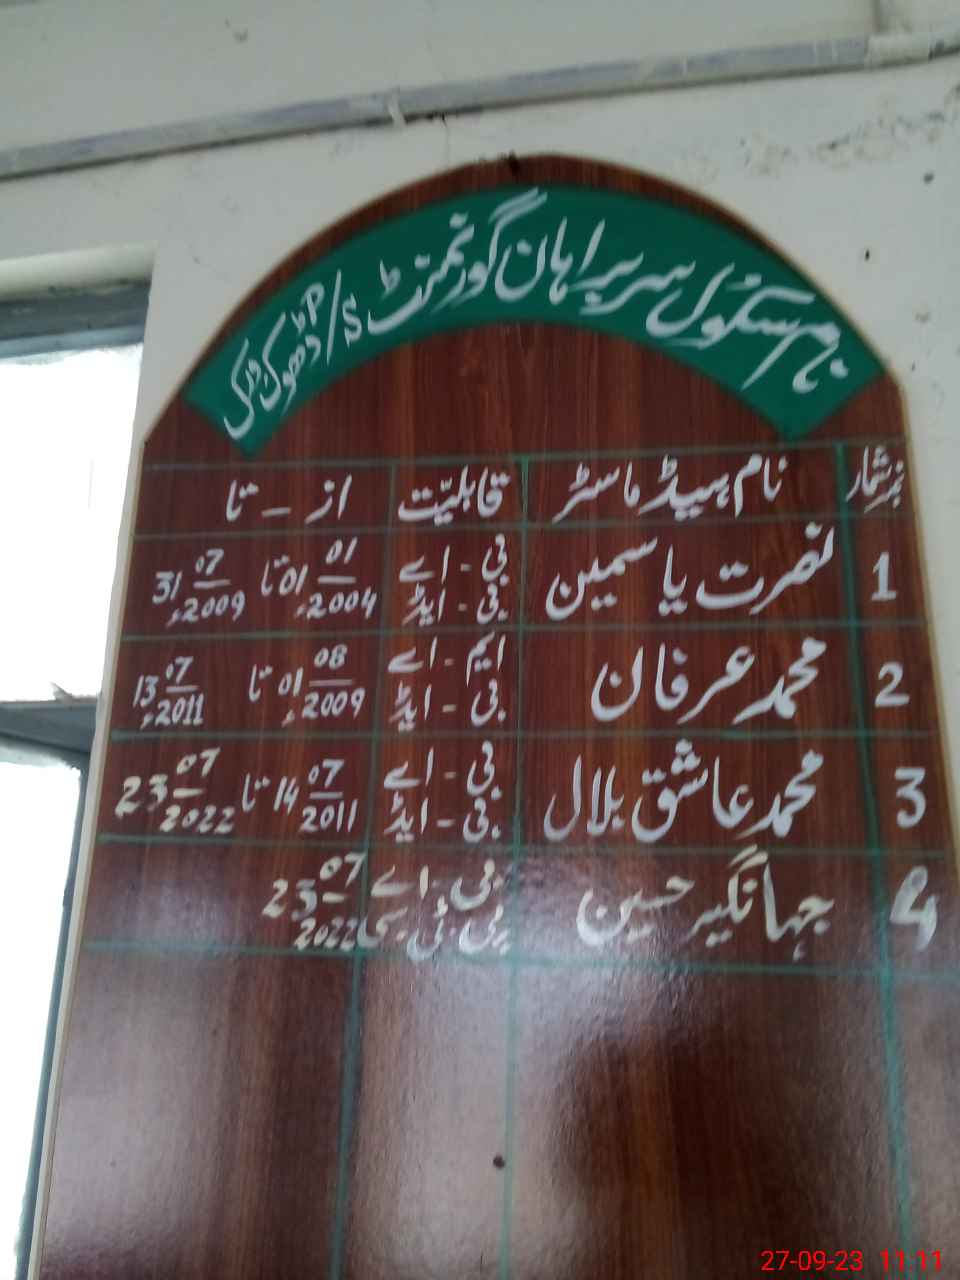 نام سکول سربراہان گورنمنٹ P/S ڈھوک ورک
نمبر شمار نام ہیڈ ماسٹر قابلیّت از - تا
1 نصرت یاسمین بی - اے 01 01 2004ء تا 31 07 2009ء
بی - ایڈ
2 محمد عرفان ایم - اے 01 08 2009ء تا 13 07 2011ء
بی - ایڈ
3 محمد عاشق بلال بی - اے 14 07 2011 تا 23 07 2022
بی - ایڈ
4 جہانگیر حسین بی - اے 23 07 2022
پی.ٹی.سی
27-09-23 11:11